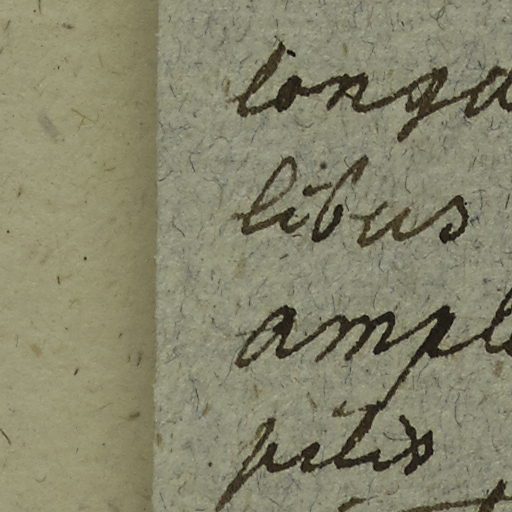 longa
libus
ampl
pilis